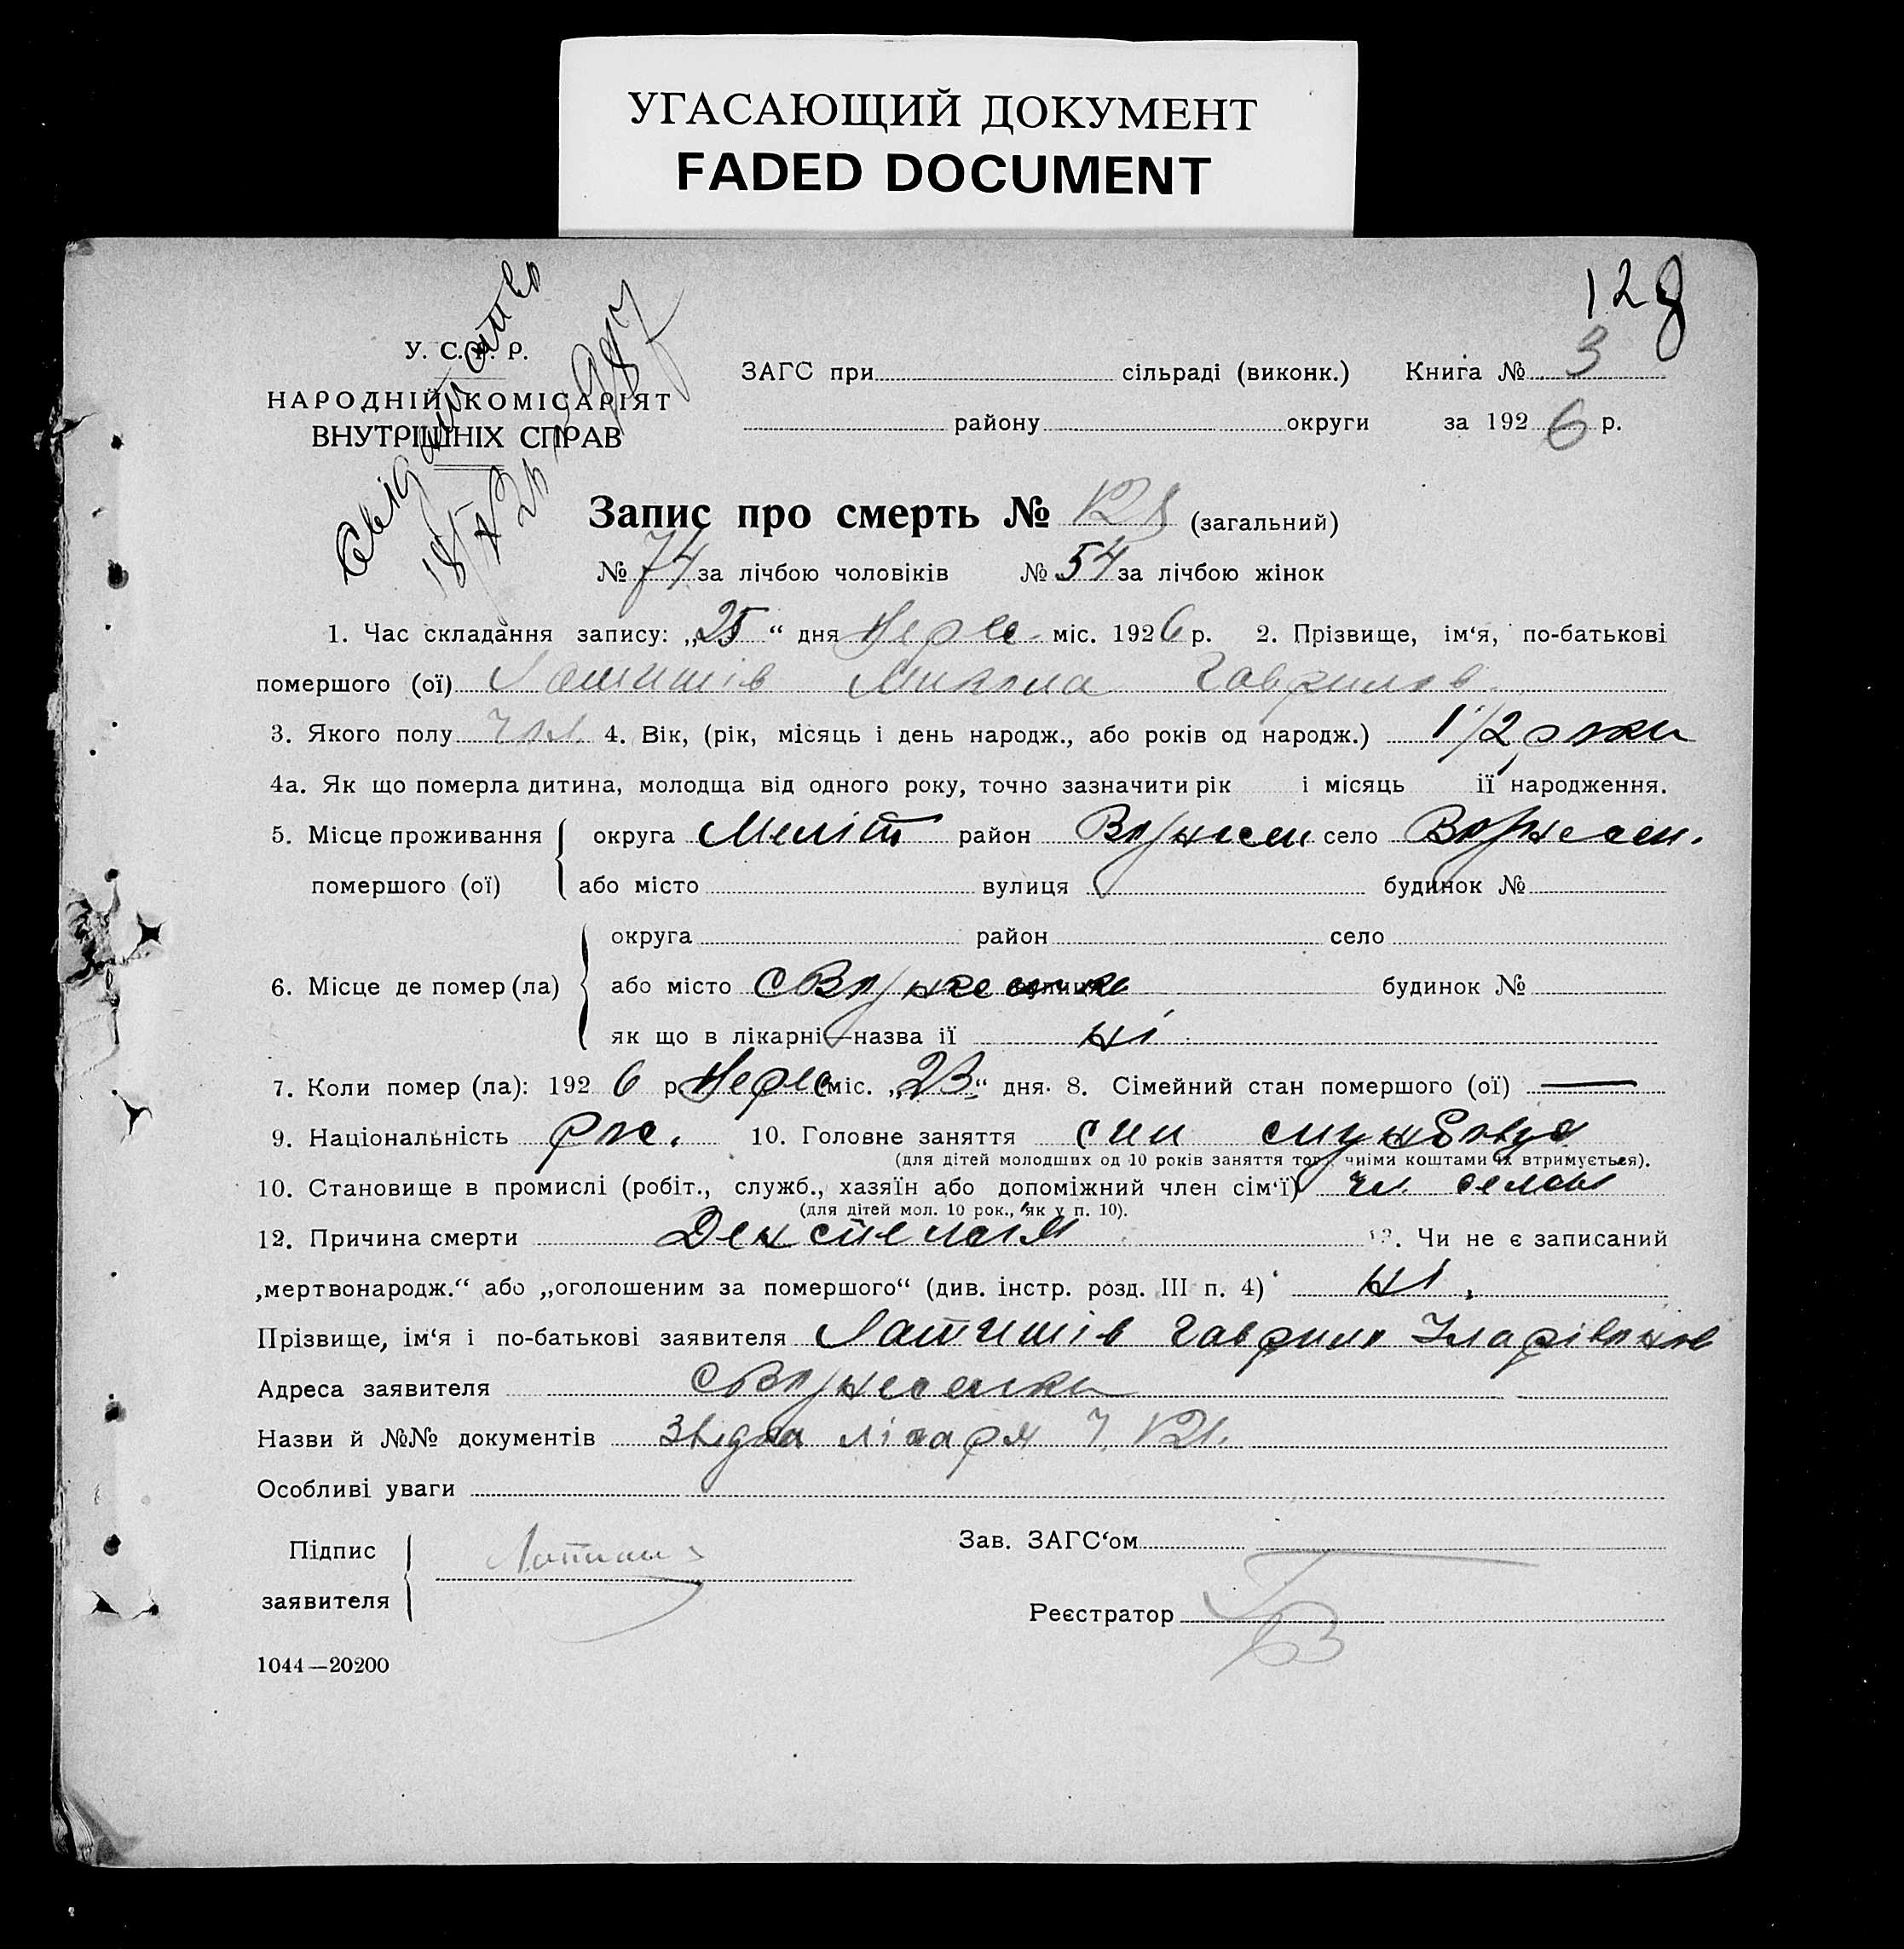 УГАСАЮЩИЙ ДОКУМЕНТ
FADED DOCUMENT
128
У. С. Р. Р.
НАРОДНІЙ КОМІСАРІЯТ
ВНУТРІШНІХ СПРАВ
ЗАГС при сільраді (виконк.) Книга № 3
району округи за 1926 р.
Запис про смерть № 128 (загальний)
№ 74 за лічбою чоловіків № 54 за лічбою жінок
1. Час складання запису: „25“ дня міс. 1926 р. 2. Прізвище, ім‘я, по-батькові
помершого (ої) Микола Гаврилов
3. Якого полу чол. 4. Вік, (рік, місяць і день народж., або років од народж.) 1 1/2 роки
4а. Як що померла дитина, молодща від одного року, точно зазначити рік і місяць її народження.
5. Місце проживання округа Меліт район Вознесен. село Вознесен.
помершого (ої) або місто вулиця будинок №
округа район село
6. Місце де помер (ла) або місто с Вознесенка вулиця будинок №
як що в лікарні—назва її ні
7. Коли помер (ла): 1926 р. міс. „23“ дня. 8. Сімейний стан помершого (ої) —
9. Національність рос. 10. Головне заняття син службовця
(для дітей молодших од 10 років заняття того, чиїми коштами їх втримується).
10. Становище в промислі (робіт., служб., хазяїн або допоміжний член сім‘ї) чл.
(для дітей мол. 10 рок., як у п. 10).
12. Причина смерти 12. Чи не є записаний
„мертвонародж.“ або „оголошеним за помершого“ (див. інстр. розд. III п. 4) ні.
Прізвище, ім‘я і по-батькові заявителя Латишів Гаврило Іларіонов
Адреса заявителя с Вознесенка
Назви й №№ документів лікаря Ч. 121.
Особливі уваги
Підпис
заявителя
Зав. ЗАГС‘ом
Реєстратор
1044—20200